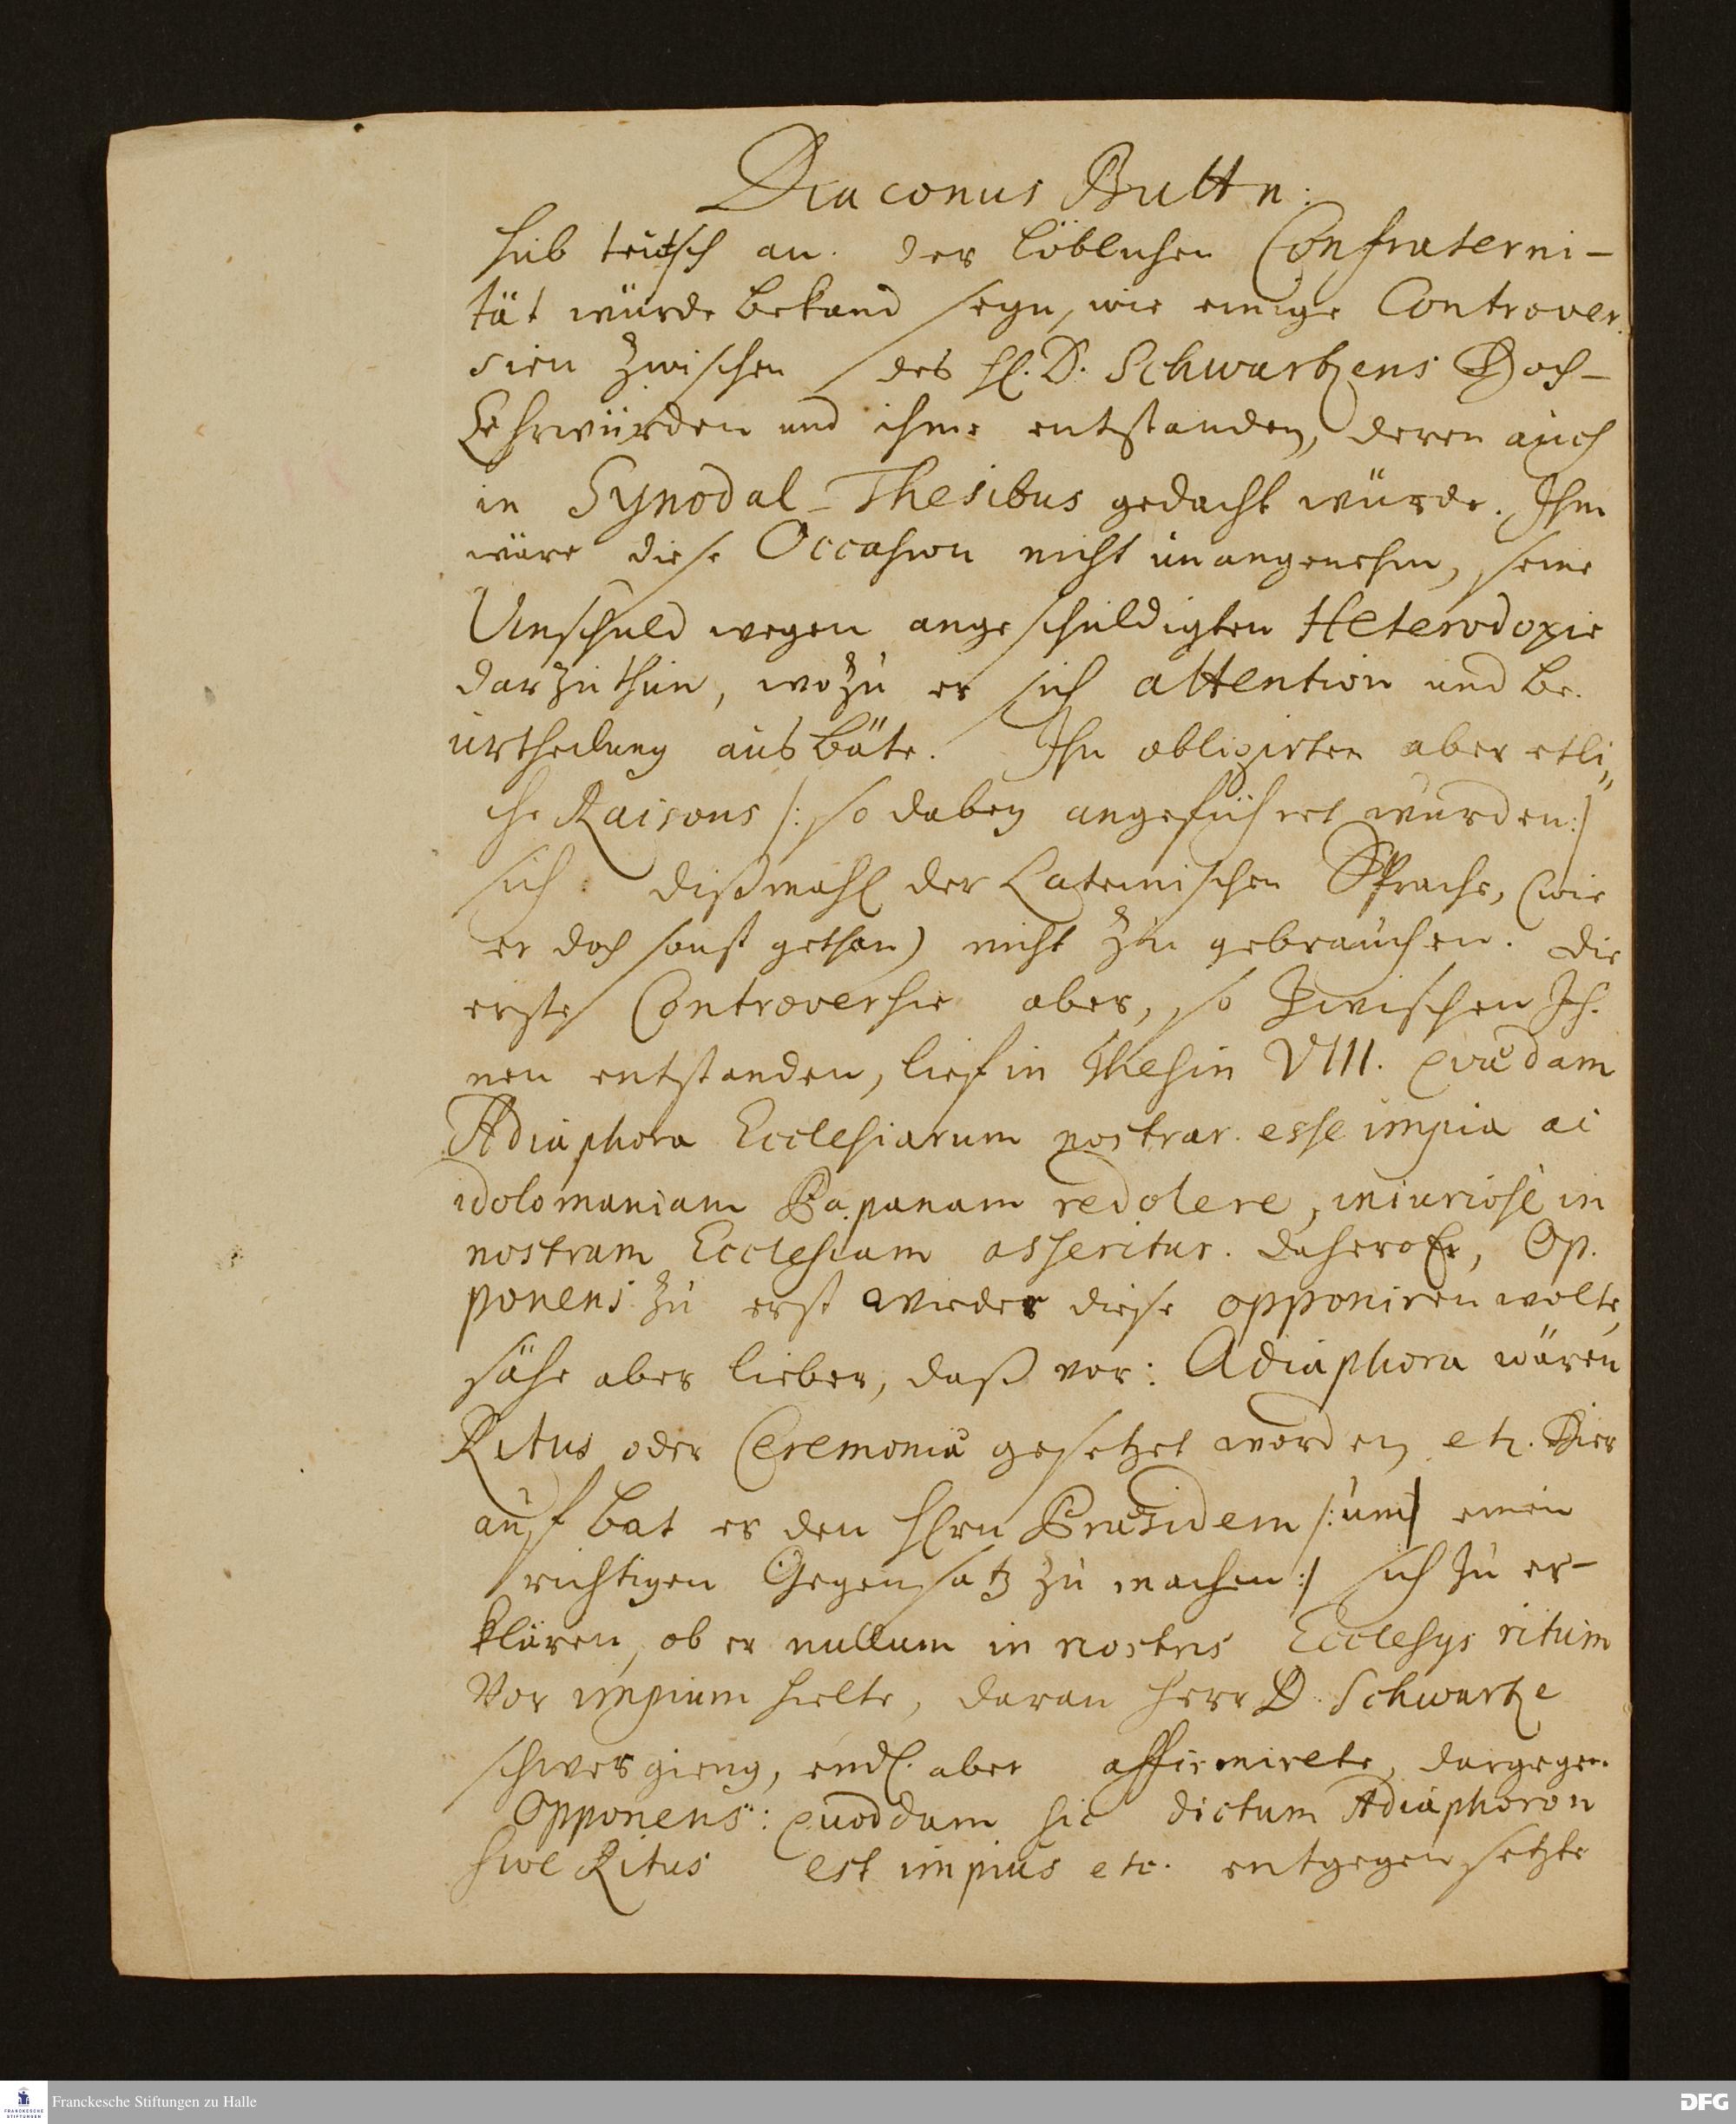 Diaconus Buttn:
hub teutsch an. der löblichen Confraterni-
tät würde bekand seyn, wie einige Controver.
sien zwischen des H. D. Schwartzens Hoch-
Ehrwürden und ihme entstanden, deren auch
in Synodal-Thesibus gedacht würde. Ihm
wäre diese Occasion nicht unangenehm, seine
Unschuld wegen angeschuldigten Heterodoxie
darzuthun, wozu er sich attention und be.
urtheilung ausbäte. Ihn obligirten aber etli„
che Raisons /: so dabey angeführet wurden :/
sich dißmahl der Lateinischen Sprache, (wie
er doch sonst gethan) nicht zu gebrauchen. Die
erste Controversie aber, so zwischen Ih.
nen entstanden, lief in thesin VIII. quædam
Adiaphora Ecclesiarum nostrar. esse impia ac
idolomaniam Papanam redolere, iniuriosè in
nostram Ecclesiam asseritur. Dahero Er, Op.
ponens zu erst wieder diese opponiren wolte,
sähe aber lieber, daß vor: Adiaphora wären
Ritus oder Ceremoniæ gesetzet worden etc. Hier
auf bat er den Hrn Præsidem /: um einen
richtigen Gegensatz zu machen :/ sich zu er-
klären, ob er nullum in nostris Ecclesijs ritum
vor impium hielte, daran Herr D. Schwartze
schwer gieng, endl. aber affirmirete, dargegen
Opponens: quoddam sic dictum Adiaphoron
sive Ritus est impius etc. entgegen setzte
Franckesche Stiftungen zu Halle
FRANCKESCHE
STIFTUNGEN
DFG